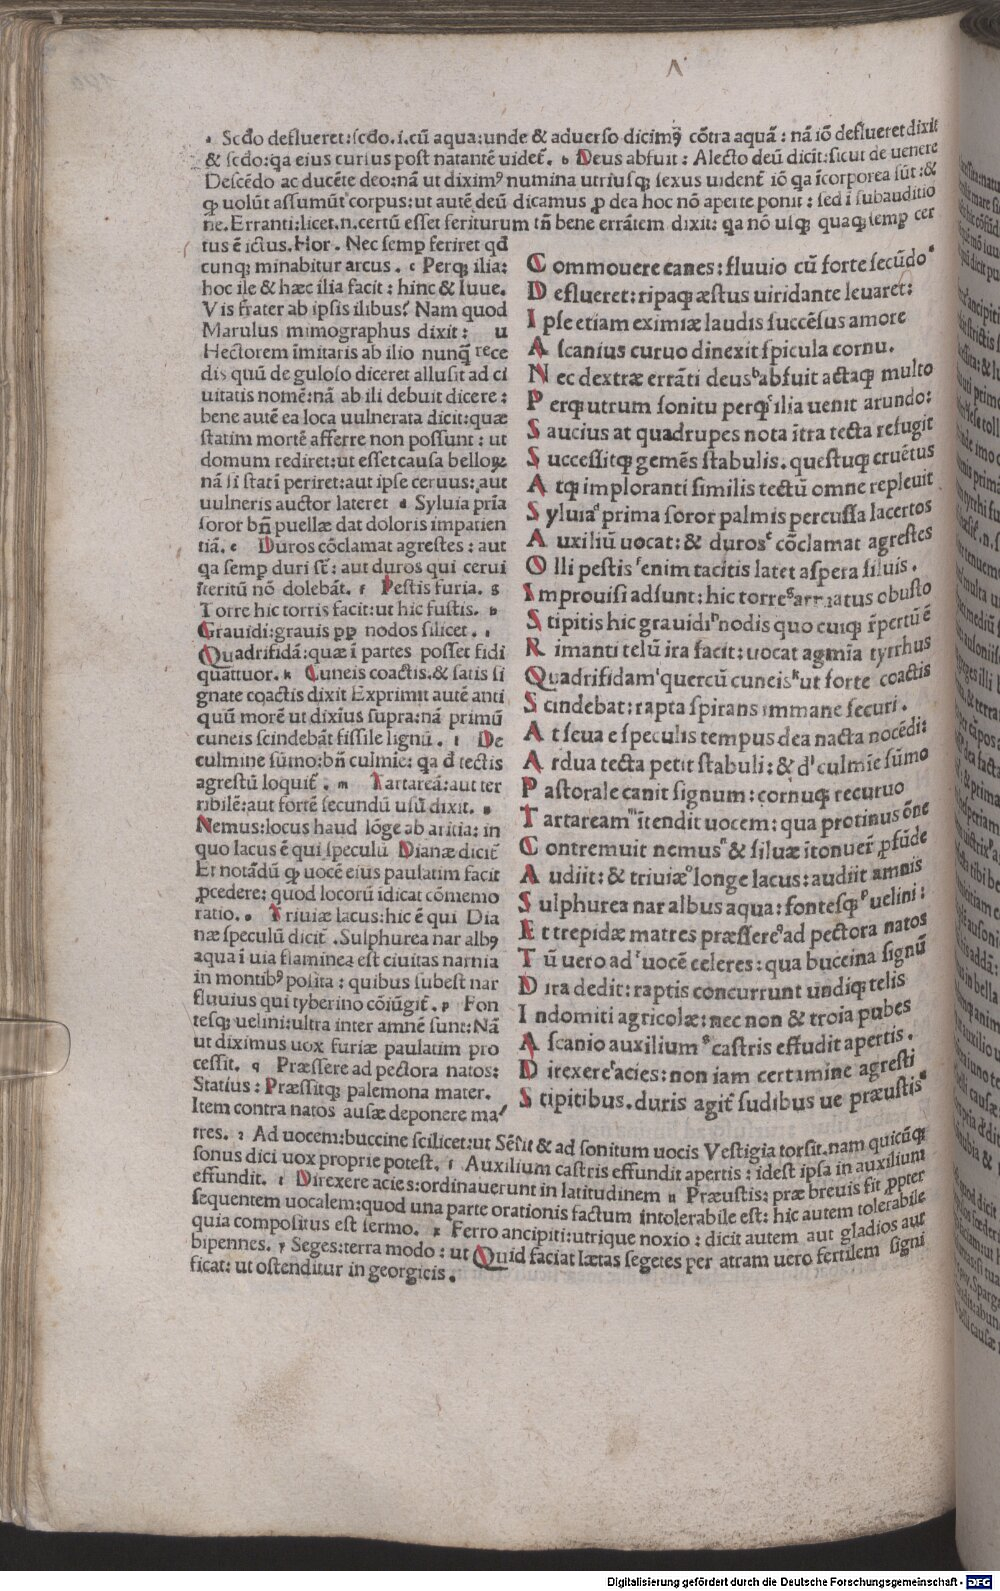 ᵃ Scđo deflueret:scđo.i.cū aqua:unde & aduerso dicimꝰ cōtra aquā: nā iō deflueret dixit
& scđo:qa eius curius post natantē uideť. ᵇ Deus abfuit: Alecto deū dicit:sicut de uenere
Descēdo ac ducēte deo:nā ut diximꝰ numina utriusqꝫ sexus uidenť iō qa īcorporea sūt:&
qꝫ uolūt assumūt corpus:ut autē deū dicamus ꝓ dea hoc nō aperte ponit: sed ī subauditio
ne.Erranti:licet.n.certū esset feriturum tn̄ bene errātem dixit: qa nō usqꝫ quaqꝫ semꝑ cer
tus ē ictus.Hor. Nec semꝑ feriret qđ
cunqꝫ minabitur arcus. ᶜ Perqꝫ ilia:
hoc ile & hæc ilia facit: hinc & Iuue.
Vis frater ab ipsis ilibus? Nam quod
Marulus mimographus dixit: u
Hectorem īmitaris ab ilio nunq̄ rece
dis quū de guloso diceret allusit ad ci
uitatis nomē:nā ab ili debuit dicere:
bene autē ea loca uulnerata dicit:quæ
statim mortē afferre non possunt: ut
domum rediret:ut esset causa belloꝝ
nā si statī periret:aut ipse ceruus: aut
uulneris auctor lateret ᵈ Syluia prīa
soror bn̄ puellæ dat doloris impatien
tiā. ᵉ Duros cōclamat agrestes: aut
qa semꝑ duri st̄: aut duros qui cerui
īteritū nō dolebāt. ᶠ Pestis furia. ᵍ
Torre hic torris facit:ut hic fustis. ʰ
Grauidi:grauis ꝓꝑ nodos silicet. ⁱ
Quadrifidā:quæ ī partes posset fidi
quattuor. ᵏ Cuneis coactis.& satis si
gnate coactis dixit Exprimit autē anti
quū morē ut dixīus supra:nā primū
cuneis scindebāt fissile lignū. ˡ De
culmine sūmo:bn̄ culmie: qa đ tectis
agrestū loquiť. ᵐ Tartareā:aut ter
ribilē:aut fortē secundū usū dixit. ⁿ
Nemus:locus haud lōge ab aritia: in
quo lacus ē qui speculū Dianæ diciť
Et notādū qꝫ uocē eius paulatim facit
ꝓcedere: quod locorū īdicat cōmemo
ratio. ᵒ Triuiæ lacus:hic ē qui Dia
næ speculū diciť .Sulphurea nar albꝰ
aqua ī uia flaminea est ciuitas narnia
in montibꝰ posita: quibus subest nar
fluuius qui tyberino cōiūgiť. ᵖ Fon
tesqꝫ uelini:ultra inter amnē sunt:Nā
ut diximus uox furiæ paulatim pro
cessit. ᑫ Præssere ad pectora natos:
Statius: Præssitqꝫ palemona mater.
Item contra natos ausæ deponere ma
tres. ʳ Ad uocem:buccine scilicet:ut Sēsit & ad sonitum uocis Vestigia torsit.nam quicūqꝫ
sonus dici uox proprie potest. ˢ Auxilium castris effundit apertis: idest ipsa in auxilium
effundit. ᵗ Direxere acies:ordinauerunt in latitudinem ᵘ Præustis: præ breuis fit ꝓpter
sequentem uocalem:quod una parte orationis factum intolerabile est: hic autem tolerabile
quia compositus est sermo. ˣ Ferro ancipiti:utrique noxio: dicit autem aut gladios aut
bipennes. ʸ Seges:terra modo: ut Quid faciat lætas segetes per atram uero fertilem signi
ficat: ut ostenditur in georgicis.
C ommouere canes: fluuio cū forte secūdoᵃ
D eflueret: ripaqꝫ æstus uiridante leuaret:
I pse etiam eximiæ laudis succēsus amore
A scanius curuo dinexit spicula cornu.
N ec dextræ errāti deusᵇ abfuit actaqꝫ multo
P erqꝫ utrum sonitu perqꝫᶜ ilia uenit arundo:
S aucius at quadrupes nota ītra tecta refugit
S uccessitqꝫ gemēs stabulis. questuqꝫ cruētus
A tqꝫ imploranti similis tectū omne repleuit
S yluiaᵈ prima soror palmis percussa lacertos
A uxiliū uocat: & durosᵉ cōclamat agrestes
O lli pestisᶠ enim tacitis latet aspera siluis.
I mprouisi adsunt: hic torreᵍ armatus obusto
S tipitis hic grauidiʰ nodis quo cuiqꝫ īpertū ē
R imanti telū ira facit: uocat agmīa tyrrhus
Quadrifidamⁱ quercū cuneisᵏ ut forte coactis
S cindebat: rapta spirans immane securi.
A t seua e speculis tempus dea nacta nocēdi:
A rdua tecta petit stabuli: & dˡ culmie sūmo
P astorale canit signum: cornuqꝫ recuruo
T artareamᵐ ītendit uocem: qua protinus ōne
C ontremuit nemusⁿ & siluæ ītonuer̄ ꝓfūde
A udiit: & triuiæᵒ longe lacus: audiit amnis
S ulphurea nar albus aqua: fontesqꝫᵖ uelini:
E t trepidæ matres præssereᑫ ad pectora natos
T ū uero adʳ uocē celeres: qua buccina signū
D ira dedit: raptis concurrunt undiqꝫ telis
I ndomiti agricolæ: nec non & troia pubes
A scanio auxiliumˢ castris effudit apertis.
D irexereᵗ acies: non iam certamine agresti
S tipitibus.duris agiť sudibus ue præustisᵘ
Digitalisierung gefördert durch die Deutsche Forschungsgemeinschaft - DFG